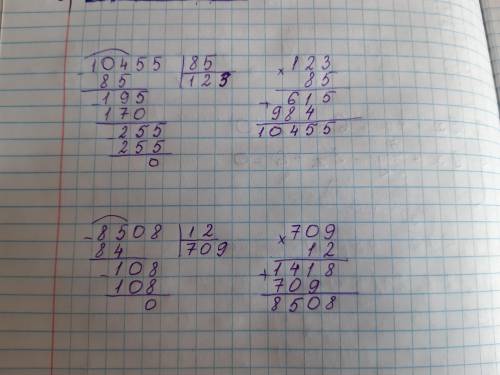 -10455 |85
85 |123
-195
170
-255
255
0
×123
85
+615
984
10455
-8508 |12
84 |709
-108
108
0
×709
12
+1418
709
8508